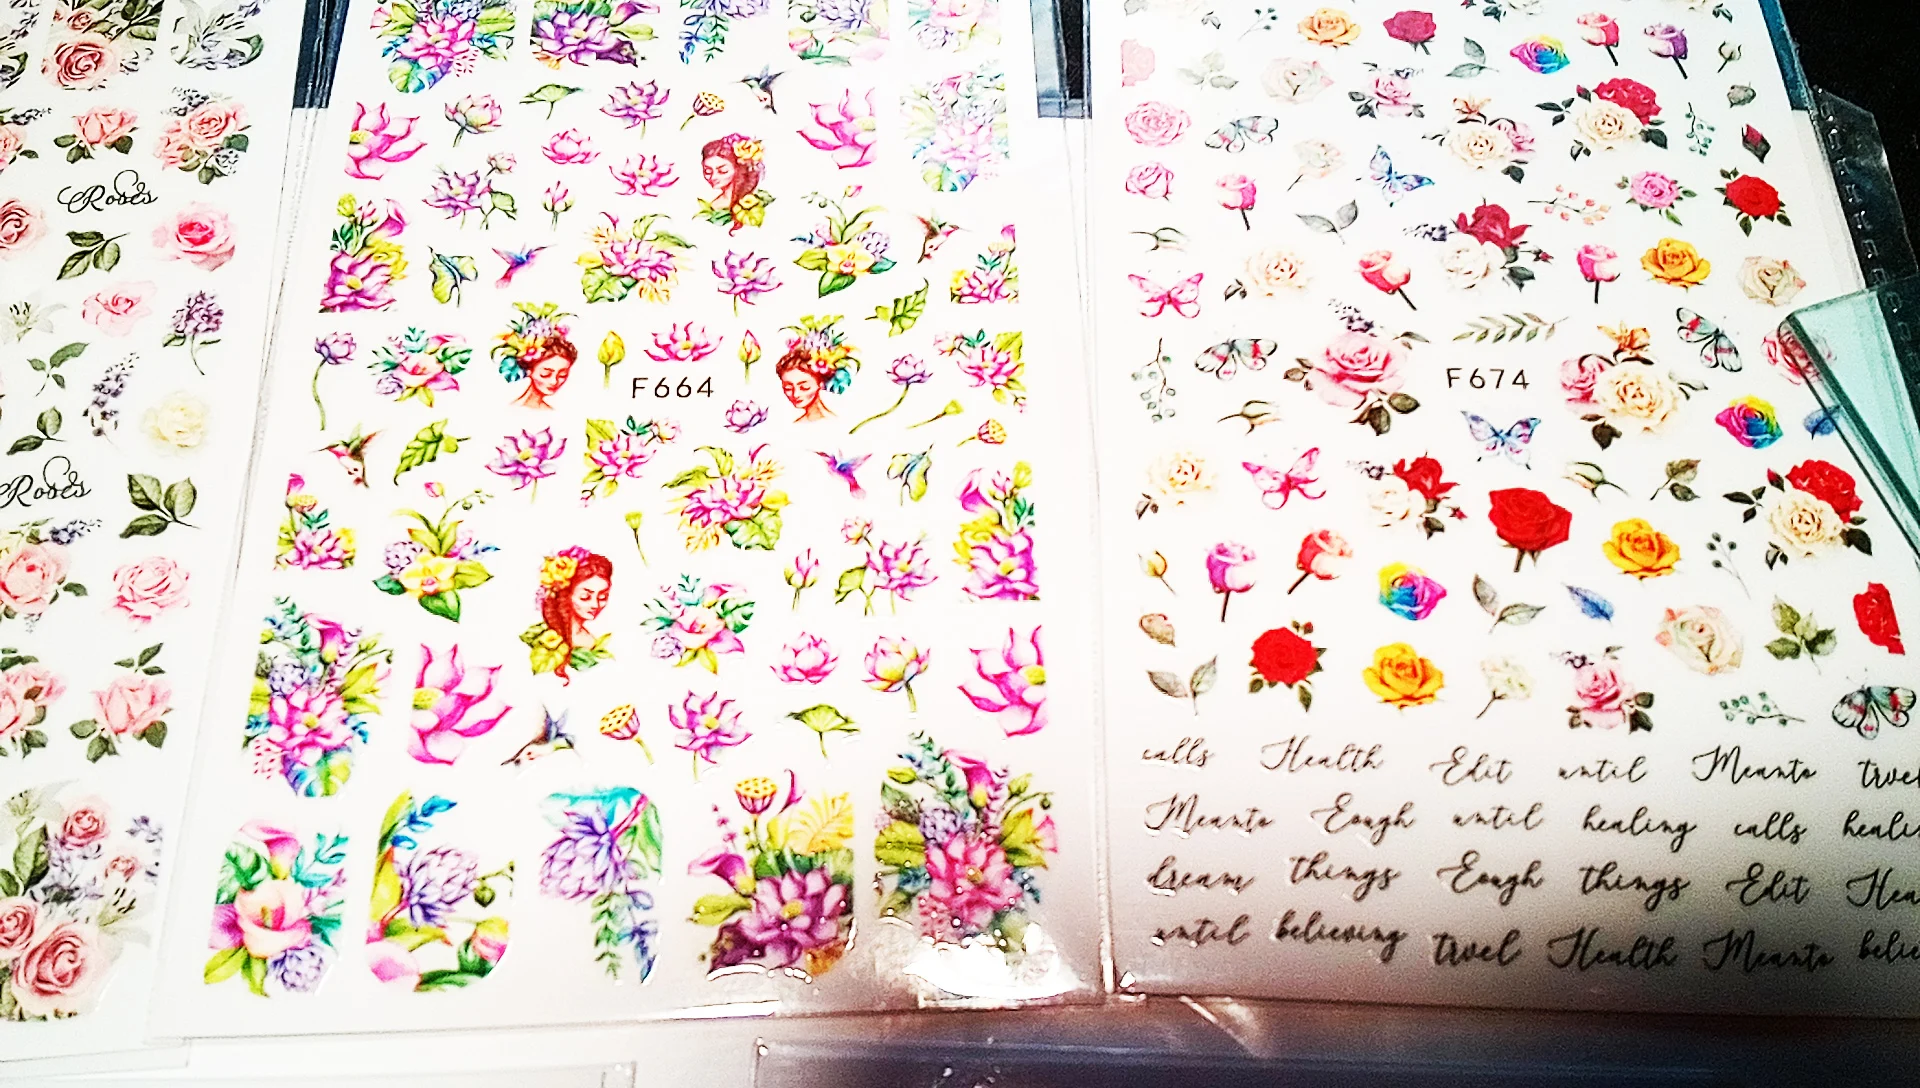 Roses
Roses
F664
F674
calls Health Edit until Meanto trvel
Meanto Eough until healing calls
dream things Eough things Edit
until believing trvel Health Meanto